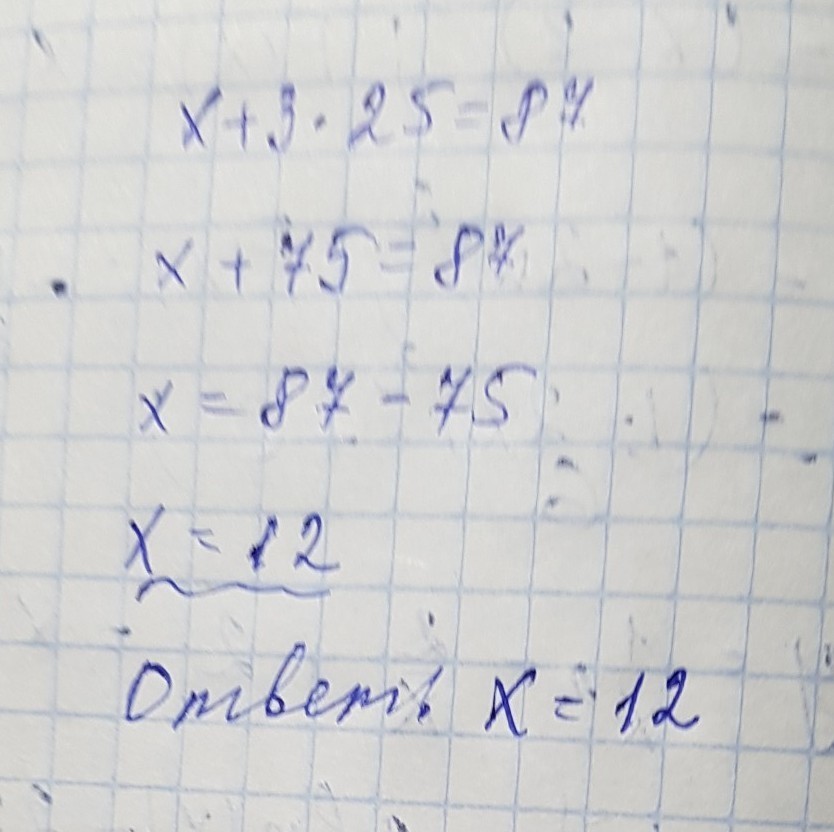 x+3·25=87
x+75=87
x=87-75
x=12
Ответ: x=12